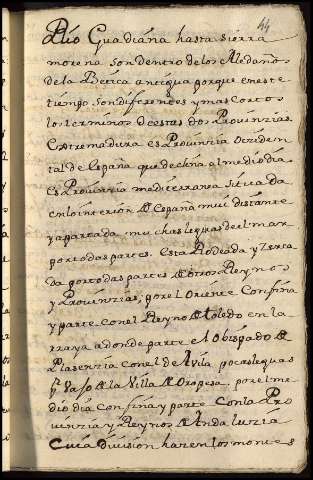 44
Rio Guadiana hasta sierra
morena son dentro de los Aledaños
de la Betica antigua porque en este
tiempo son diferentes y mas cortos
los terminos de estas dos Provinzias.
Extremadura es Provinzia ocziden
tal de España que declina al medio dia
es Provinzia mediterranea sitiada
en lo interior de España mui distante
y apartada muchas leguas del mar
por todas partes. esta Rodeada y zerca
da por todas partes de otros Reynos
y Provinzias, por el Oriente Confina
y parte con el Reyno de Toledo en la
rraya adonde parte el Obispado de
Plasenzia con el de Avila pocas leguas
Vajo de la Villa de Oropesa, por el me
dio dia confina y parte con la Pro
vinzia y Reynos de Andaluzia
Cuia division hazen los montes